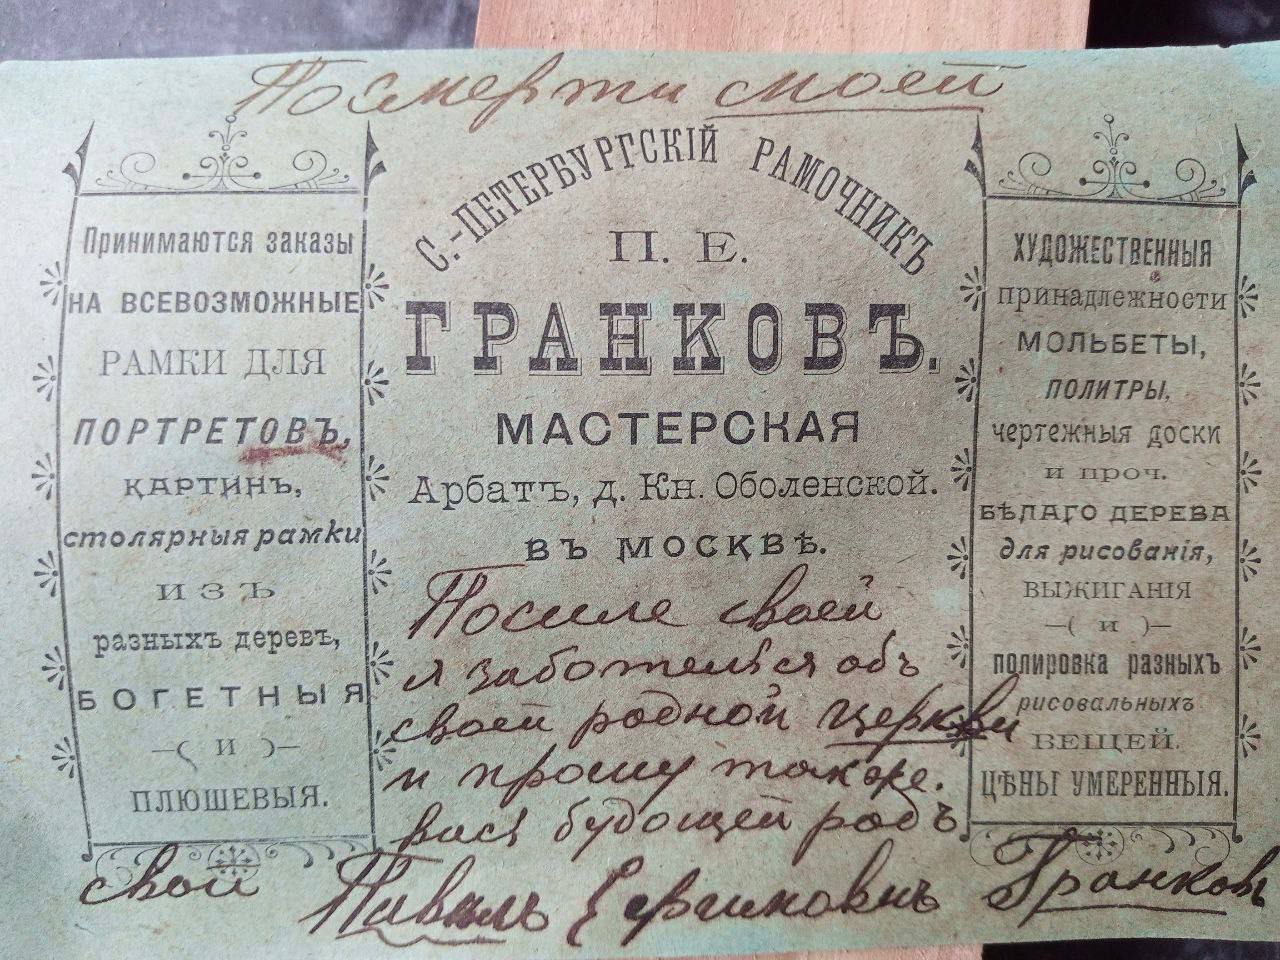 Посмерти моей
С.-ПЕТЕРБУРГСКІЙ РАМОЧНИКЪ
П. Е.
ГРАНКОВЪ.
МАСТЕРСКАЯ
Арбатъ, д. Кн. Оболенской.
въ МОСКВѢ.
Принимаются заказы
НА ВСЕВОЗМОЖНЫЕ
РАМКИ ДЛЯ
ПОРТРЕТОВЪ,
КАРТИНЪ,
столярныя рамки
ИЗЪ
разныхъ деревъ,
БОГЕТНЫЯ
—( И )—
ПЛЮШЕВЫЯ.
ХУДОЖЕСТВЕННЫЯ
принадлежности
МОЛЬБЕТЫ,
ПОЛИТРЫ,
чертежныя доски
и проч.
БѢЛАГО ДЕРЕВА
для рисованія,
ВЫЖИГАНІЯ
—( и )—
полировка разныхъ
рисовальныхъ
ВЕЩЕЙ.
ЦѢНЫ УМЕРЕННЫЯ.
Посиле своей
я заботелься объ
своей родной церкви
и прошу также.
васъ будощей родъ
свой Павилъ Гранковъ